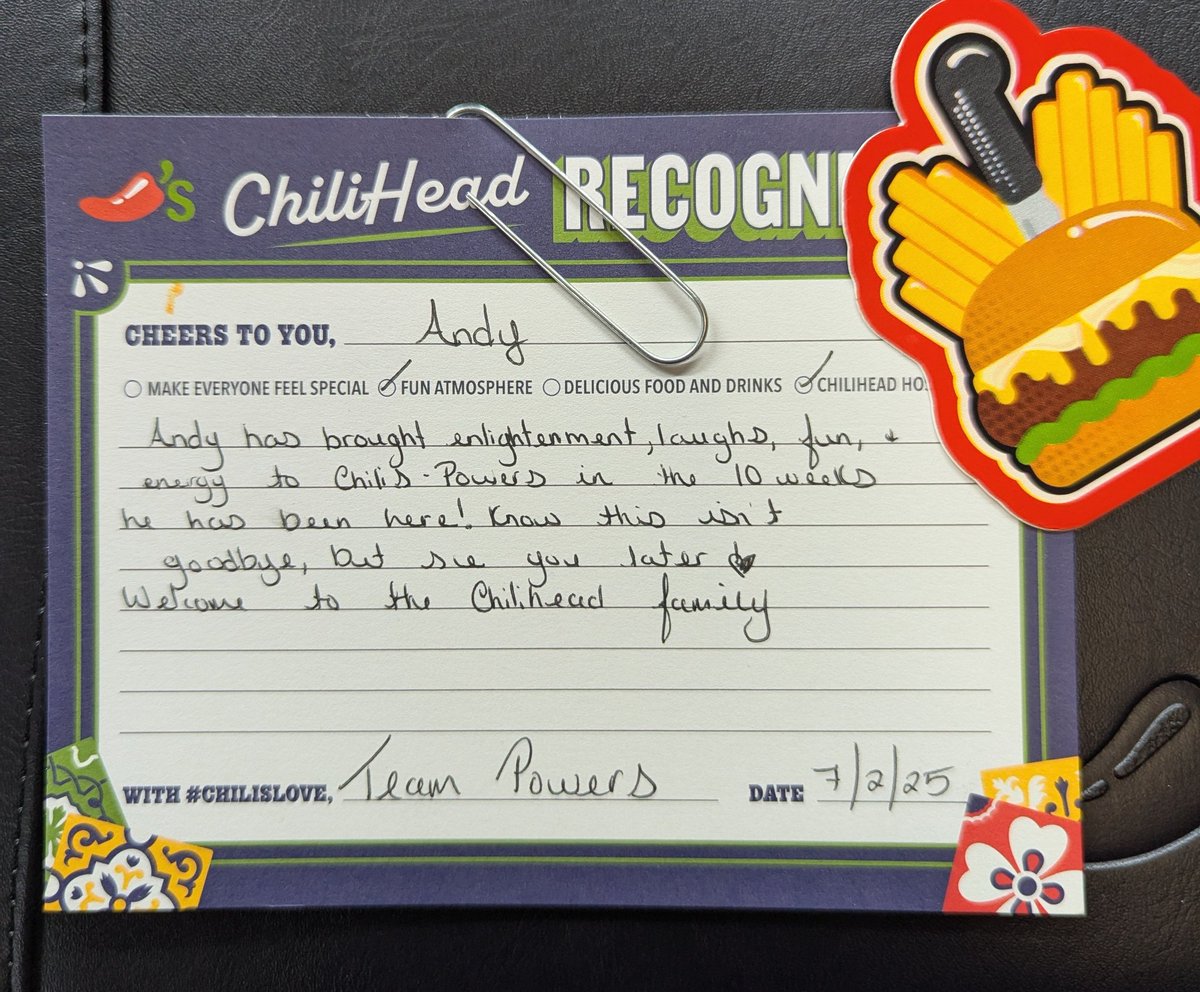 's ChiliHead RECOGNI
CHEERS TO YOU, Andy
MAKE EVERYONE FEEL SPECIAL FUN ATMOSPHERE DELICIOUS FOOD AND DRINKS CHILIHEAD HO
Andy has brought enlightenment, laughs, fun, +
energy to Chilis-Powers in the 10 weeks
he has been here! Know this isn't
goodbye, but see you later
Welcome to the Chilihead family
WITH #CHILISLOVE, Team Powers DATE 7/2/25